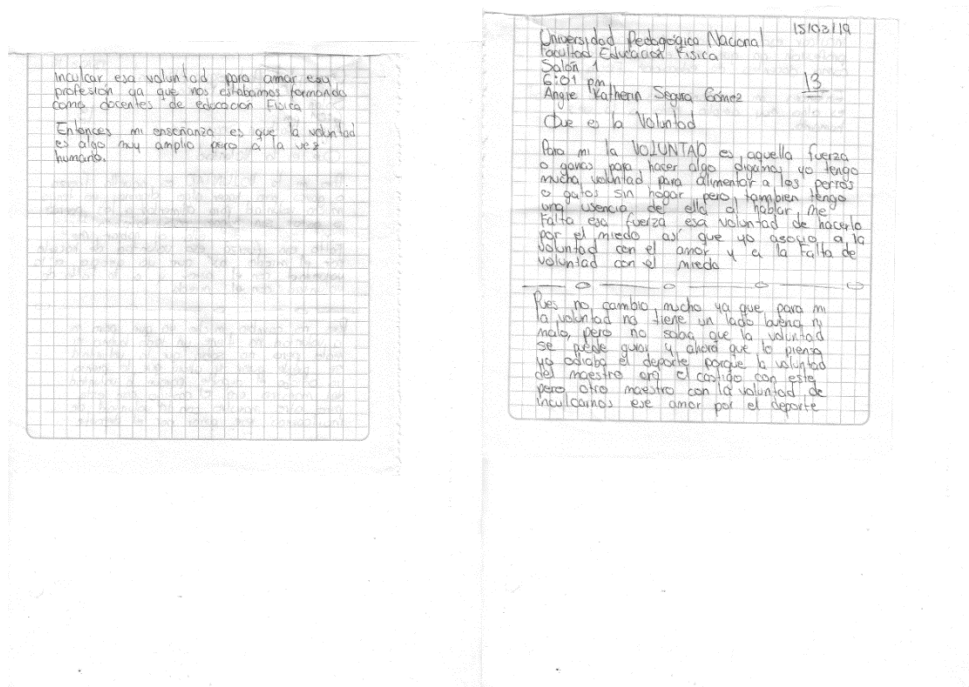 Inculcar esa voluntad para amar esa
profesión ya que nos estabamos formando
como docentes de educación Fisica
Entonces mi enseñanza es que la voluntad
es algo muy amplio pero a la vez
humano.
15/03/19
Universidad Pedagogica Nacional
Facultad Educación Fisica
Salón 1
6:01 pm
13
Angie Katherin Segura Gómez
Que es la Voluntad
Para mi la VOLUNTAD es aquella fuerza
o ganas para hacer algo digamos yo tengo
mucha voluntad para alimentar a los perros
o gatos sin hogar pero tambien tengo
una usencia de ella al hablar me
Falta esa fuerza esa voluntad de hacerlo
por el miedo así que yo asocio a la
voluntad con el amor y a la Falta de
voluntad con el miedo
Pues no cambio mucho ya que para mi
la voluntad no tiene un lado bueno ni
malo, pero no sabia que la voluntad
se puede guiar y ahora que lo pienso
yo odiaba el deporte porque la voluntad
del maestro era el castigo con este
pero otro maestro con la voluntad de
inculcarnos ese amor por el deporte